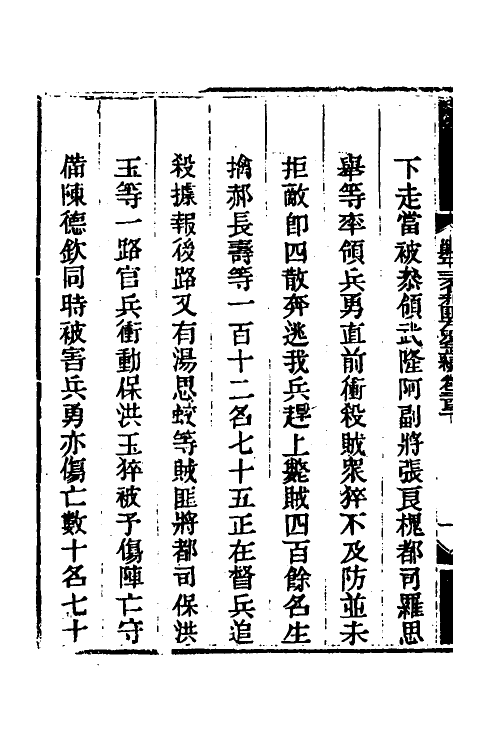 下走當被叅領武隆阿副將張良槐都司羅思
舉等率領兵勇直前衝殺賊衆猝不及防並未
拒敵卽四散奔逃我兵趕上斃賊四百餘名生
擒郝長壽等一百十二名七十五正在督兵追
殺據報後路又有湯思蛟等賊匪將都司保洪
玉等一路官兵衝動保洪玉猝被予傷陣亡守
備陳德欽同時被害兵勇亦傷亡數十名七十